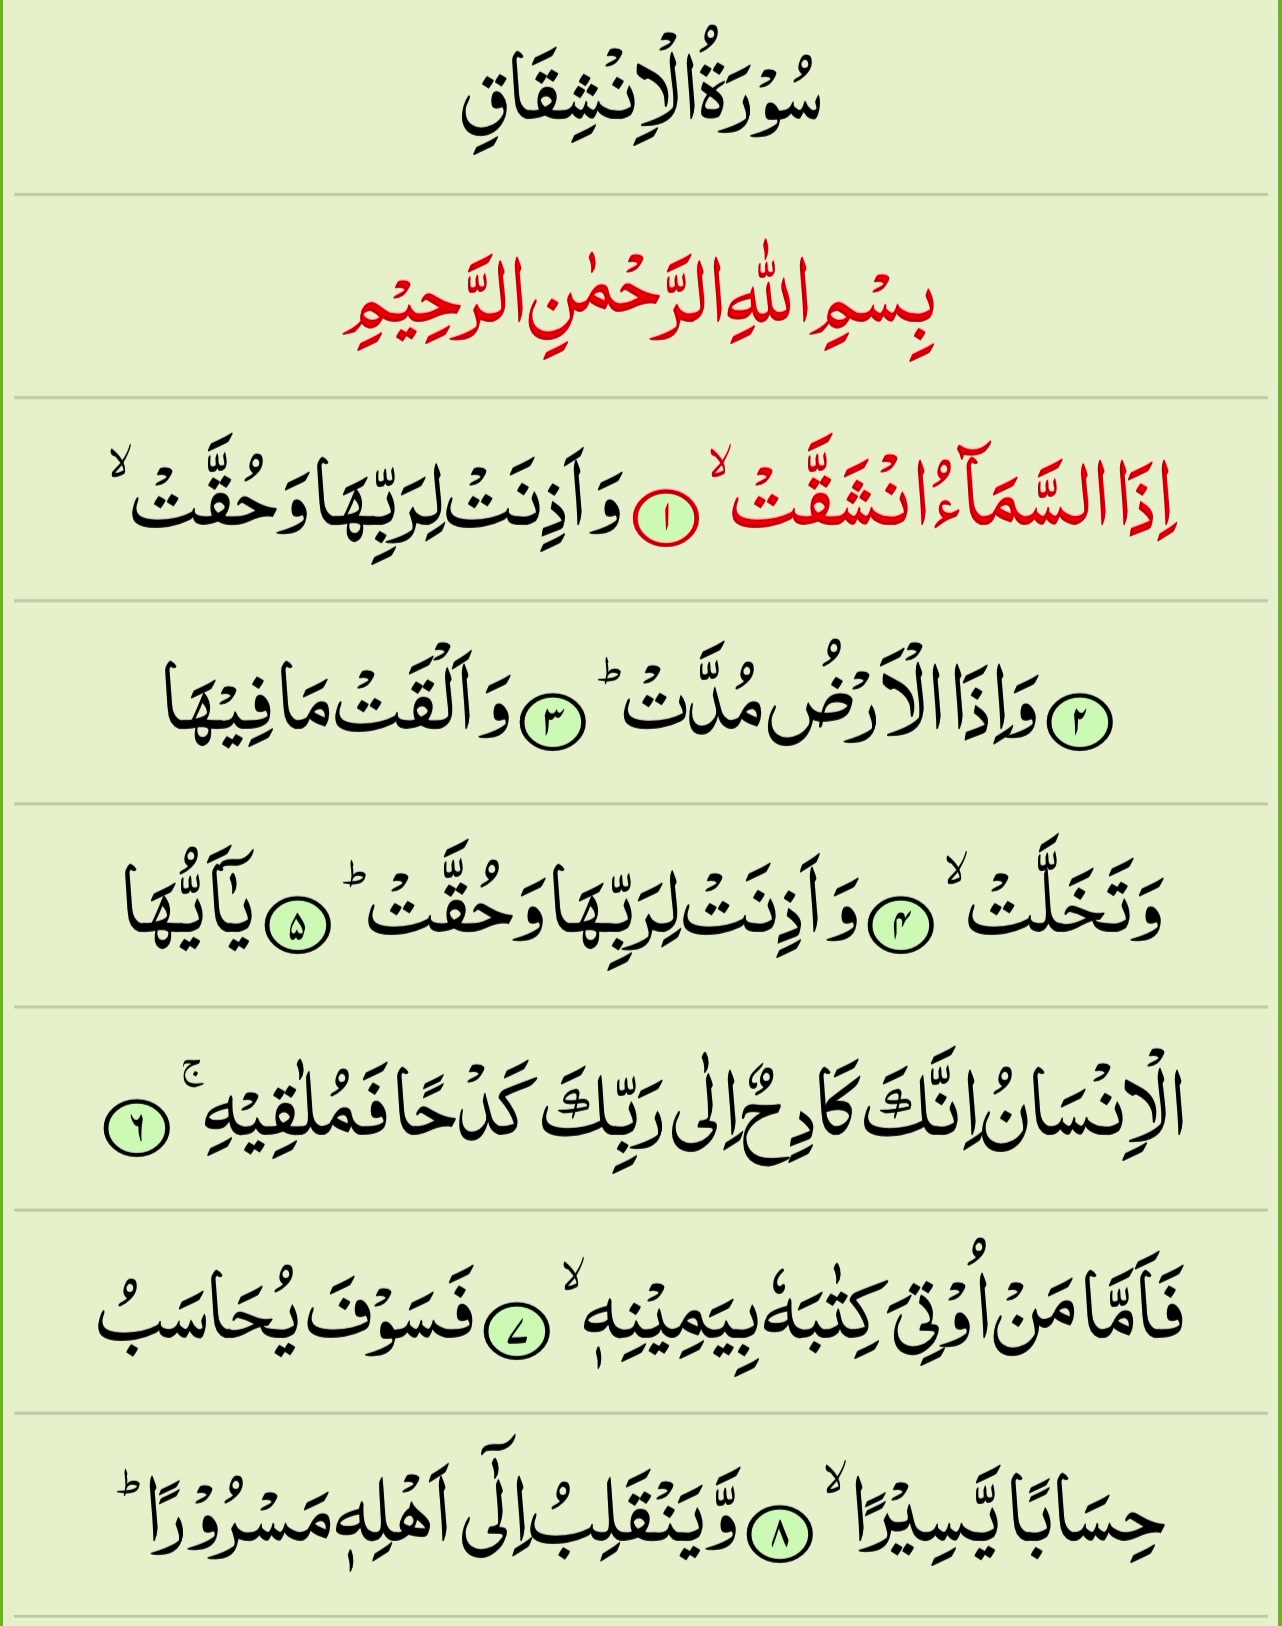 سُوْرَةُ الْاِنْشِقَاقِ
بِسْمِ اللّٰهِ الرَّحْمٰنِ الرَّحِيْمِ
اِذَا السَّمَآءُ انْشَقَّتْ ۙ ۱ وَ اَذِنَتْ لِرَبِّهَا وَحُقَّتْ ۙ
۲ وَاِذَا الْاَرْضُ مُدَّتْ ؕ ۳ وَ اَلْقَتْ مَا فِيْهَا
وَتَخَلَّتْ ۙ ۴ وَ اَذِنَتْ لِرَبِّهَا وَحُقَّتْ ؕ ۵ يٰۤاَيُّهَا
الْاِنْسَانُ اِنَّكَ كَادِحٌ اِلٰى رَبِّكَ كَدْحًا فَمُلٰقِيْهِ ۚ ۶
فَاَمَّا مَنْ اُوْتِىَ كِتٰبَهٗ بِيَمِيْنِهٖ ۙ ۷ فَسَوْفَ يُحَاسَبُ
حِسَابًا يَّسِيْرًا ۙ ۸ وَّيَنْقَلِبُ اِلٰٓى اَهْلِهٖ مَسْرُوْرًا ؕ